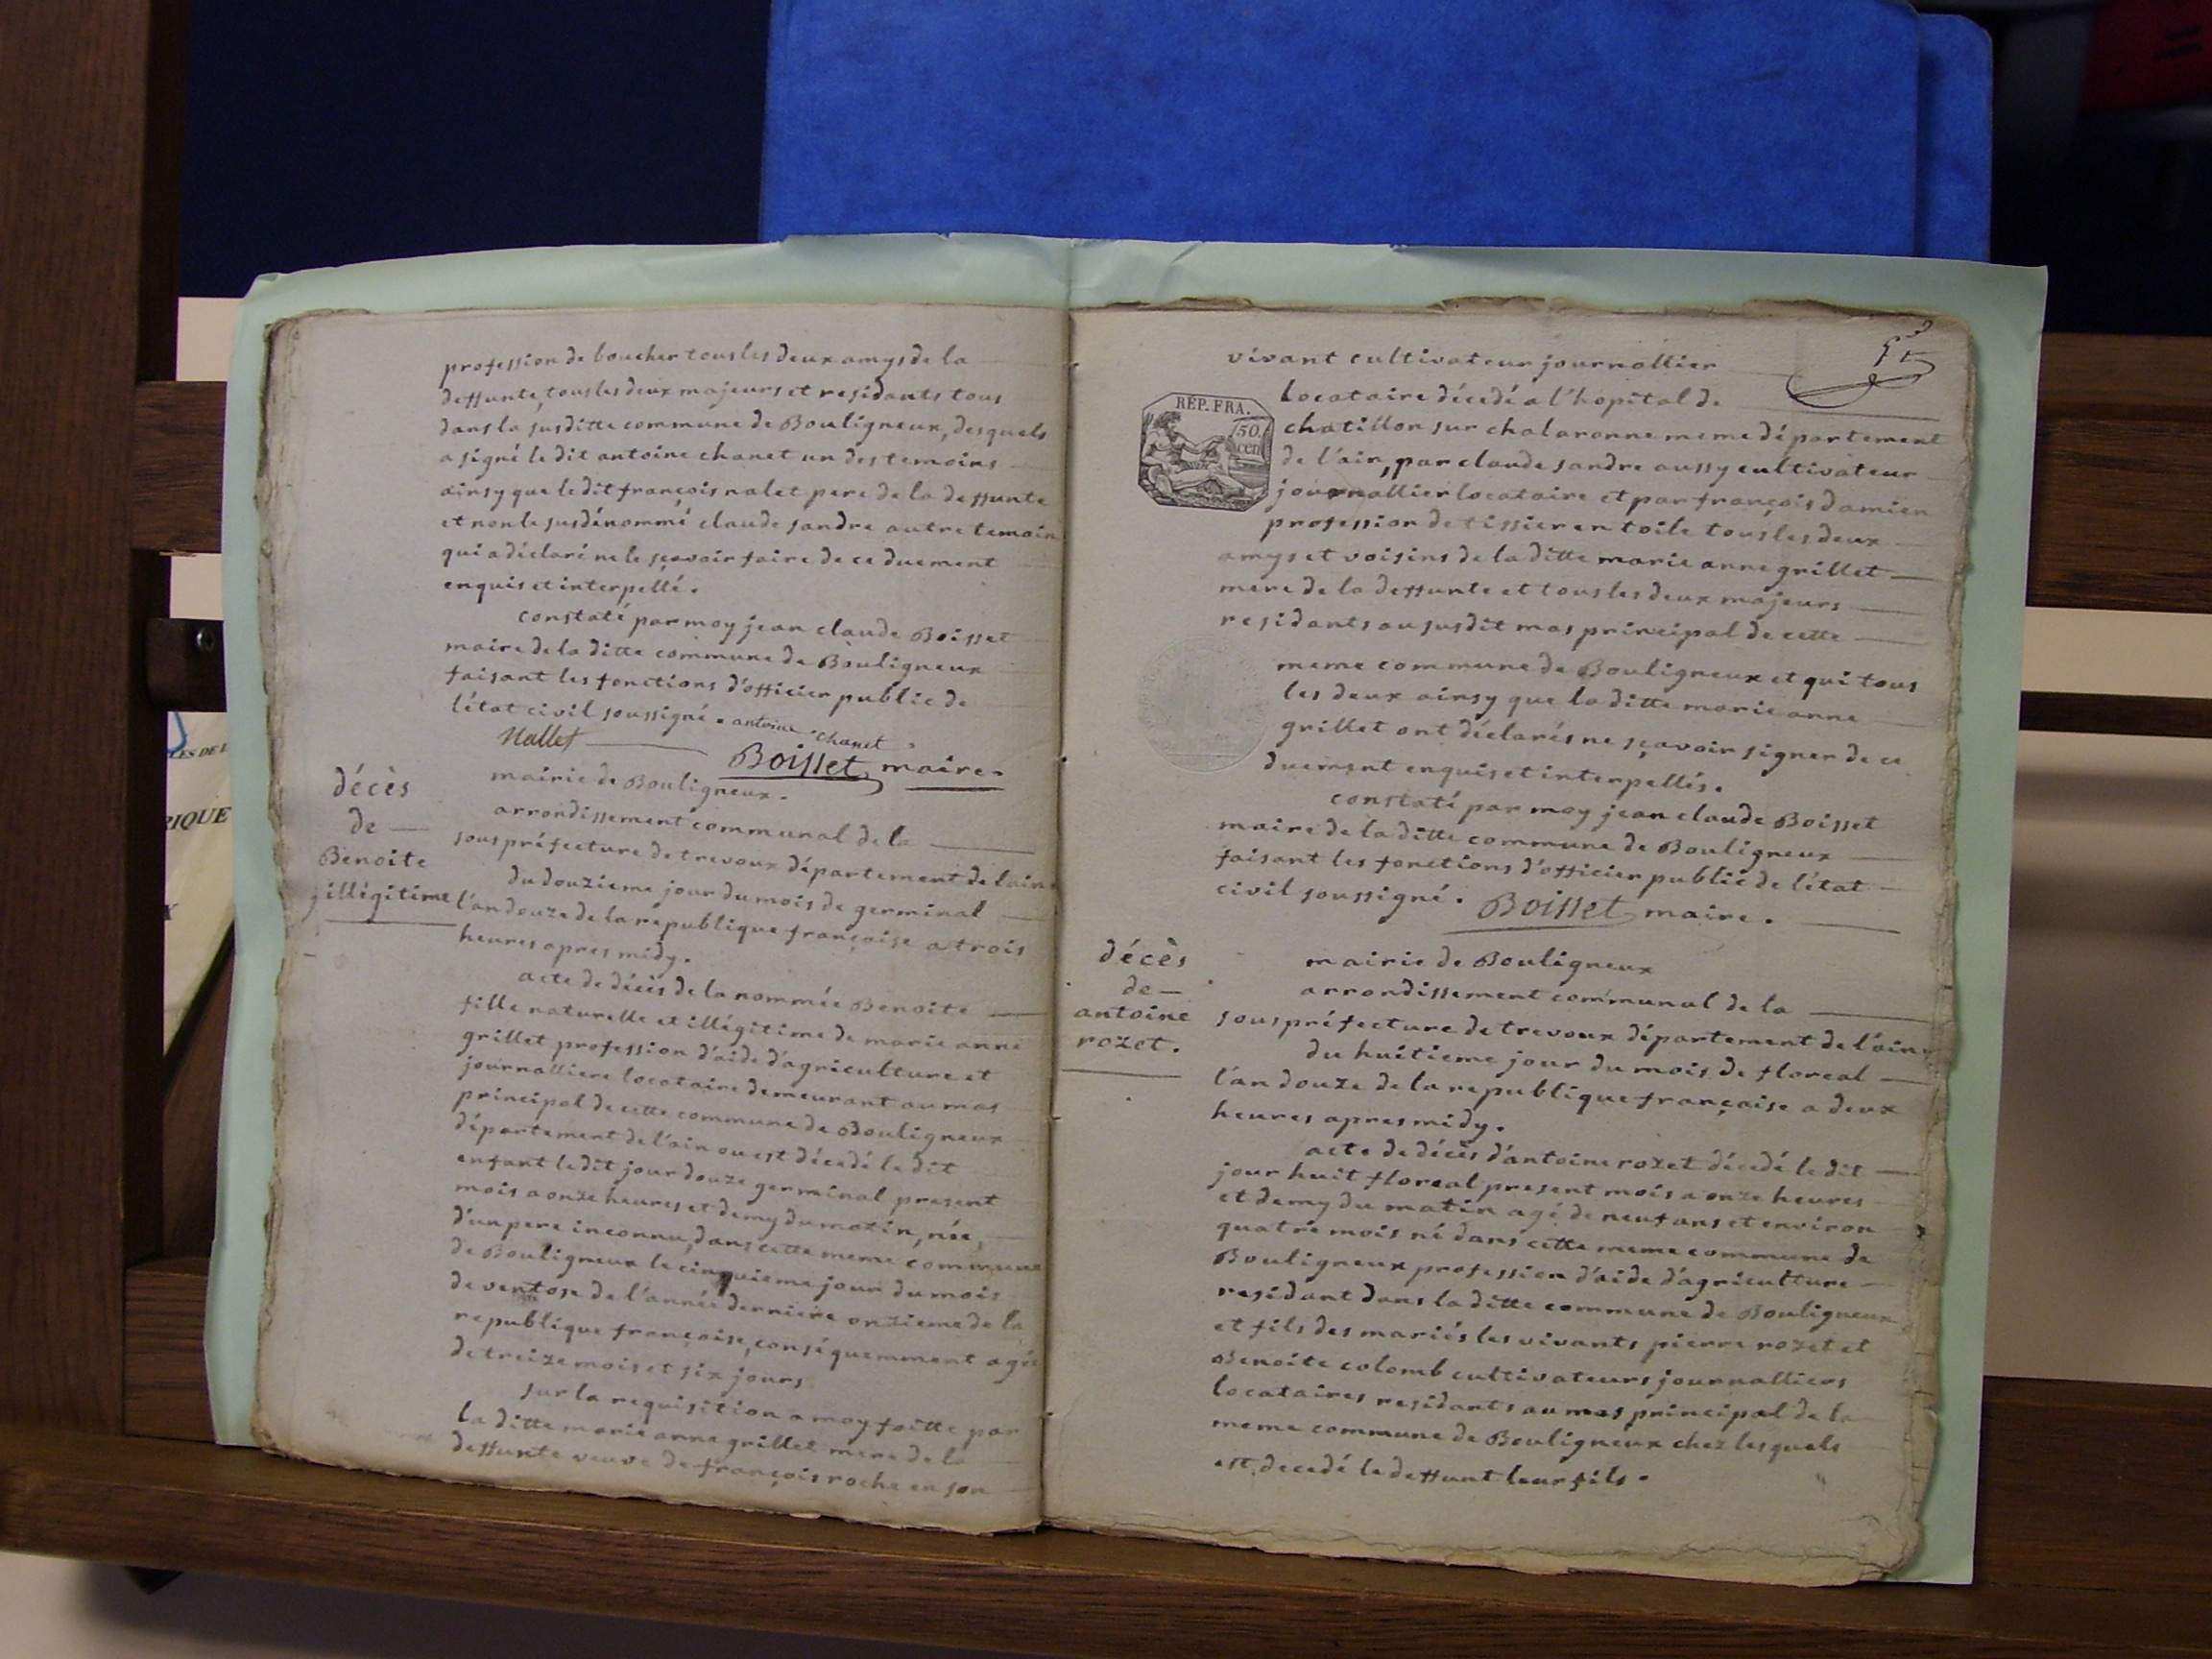 profession de boucher tous les deux amys de la
deffunte, tous les deux majeurs et residants tous
dans la susditte commune de Bouligneux, desquels
a signé le dit antoine chanet un des temoins
ainsy que le dit françois nalet pere de la deffunte
et non le susdénommé claude sandre autre temoin
qui a déclaré ne le sçavoir faire de ce duement
enquis et interpellé.
constaté par moy jean claude Boisset
maire de la ditte commune de Bouligneux
faisant les fonctions d'officier public de
l'état civil soussigné. antoine chanet
Nallet
Boisset maire.
décès
de
Benoite
illégitime
mairie de Bouligneux.
arrondissement communal de la
souspréfecture de trevoux département de l'ain
du douzieme jour du mois de germinal
l'an douze de la république françoise a trois
heures apres midy.
acte de décès de la nommée Benoite
fille naturelle et illégitime de marie anne
grillet profession d'aide d'agriculture et
journalliere locataire demeurant au mas
principal de cette commune de Bouligneux
département de l'ain ou est décedé le dit
enfant le dit jour douze germinal present
mois a onze heures et demy du matin, née,
d'un pere inconnu, dans cette meme commune
de Bouligneux le cinquieme jour du mois
de ventose de l'année derniere onzieme de la
republique françoise, conséquemment agée
de treize mois et six jours
sur la requisition a moy faitte par
la ditte marie anne grillet mere de la
deffunte veuve de françois roche en son
vivant cultivateur journallier
locataire décedé a l'hopital de
RÉP. FRA.
50
cen
chatillon sur chalaronne meme département
de l'ain, par claude sandre aussy cultivateur
journallier locataire et par françois damien
profession de tissier en toile tous les deux
amys et voisins de la ditte marie anne grillet
mere de la deffunte et tous les deux majeurs
residants au susdit mas principal de cette
meme commune de Bouligneux et qui tous
les deux ainsy que la ditte marie anne
grillet ont déclarés ne sçavoir signer de ce
duement enquis et interpellés.
constaté par moy jean claude Boisset
maire de la ditte commune de Bouligneux
faisant les fonctions d'officier public de l'état
civil soussigné. Boisset maire.
décès
de
antoine
rozet.
mairie de Bouligneux
arrondissement communal de la
souspréfecture de trevoux département de l'ain
du huitieme jour du mois de floreal
l'an douze de la republique française a deux
heures apres midy.
acte de décès d'antoine rozet décedé le dit
jour huit floreal present mois a onze heures
et demy du matin agé de neuf ans et environ
quatre mois né dans cette meme commune de
Bouligneux profession d'aide d'agriculture
residant dans la ditte commune de Bouligneux
et fils des mariés les vivants pierre rozet et
Benoite colomb cultivateurs journalliers
locataires residants au mas principal de la
meme commune de Bouligneux chez lesquels
est decedé le deffunt leur fils.
RIQUE